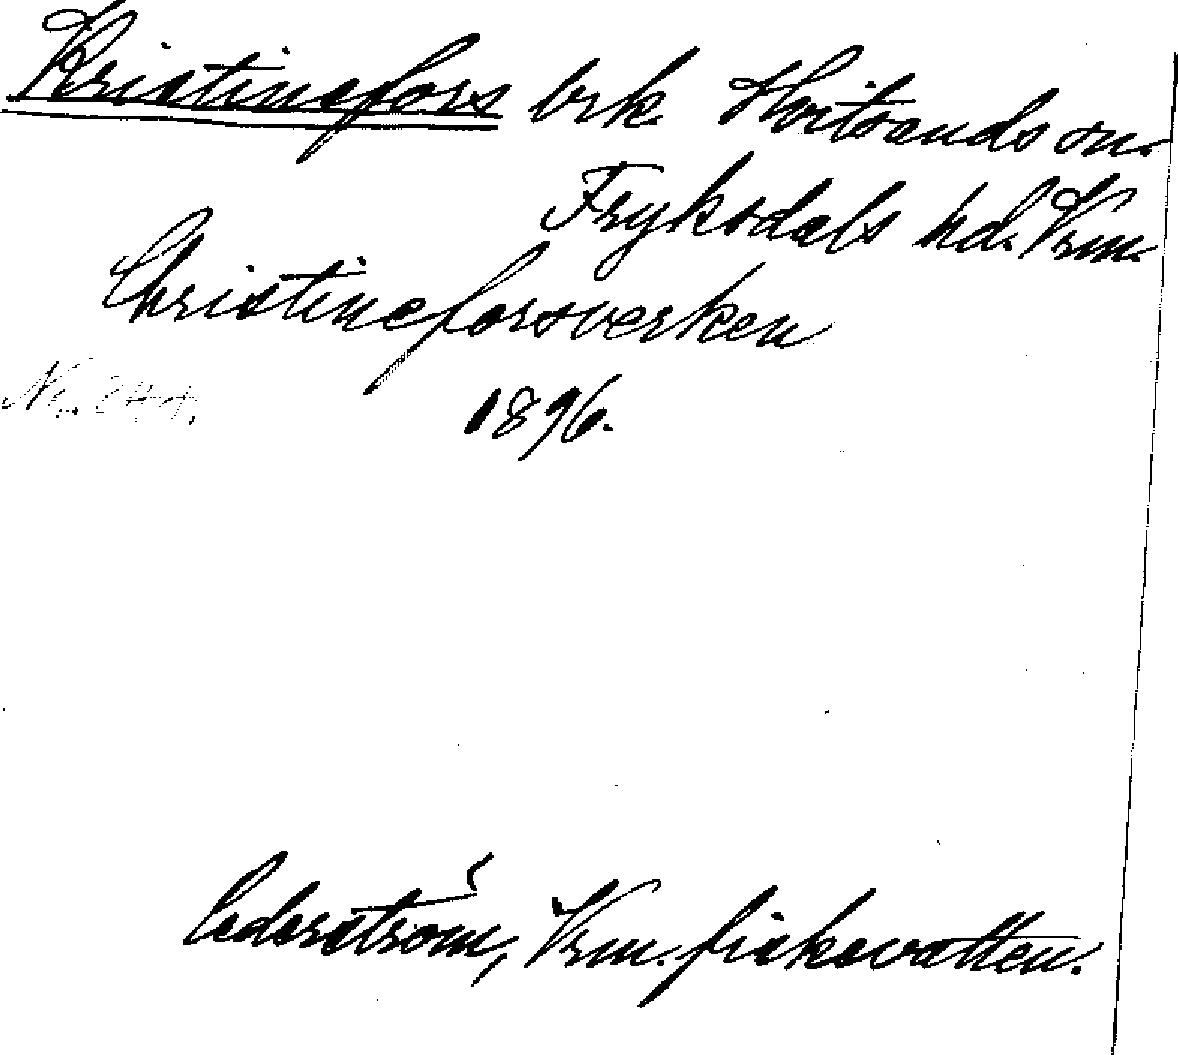 Kristinefors brk Hvitsands sn.
Fryksdals hd. Vrm.
Christineforsverken
No. 244.
1896.
Cederström, Vrm. fiskevatten.